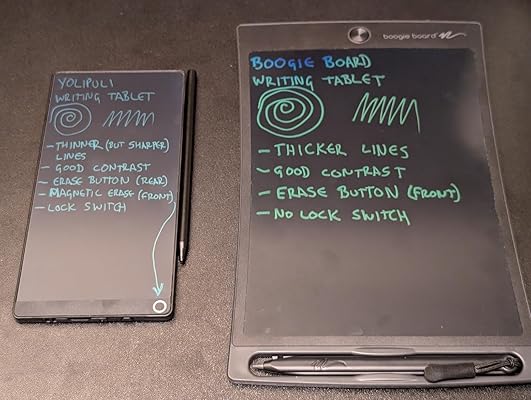 YOLIPULI
WRITING TABLET
- THINNER (BUT SHARPER)
LINES
- GOOD CONTRAST
- ERASE BUTTON (REAR)
- MAGNETIC ERASE (FRONT)
- LOCK SWITCH
boogie board
BOOGIE BOARD
WRITING TABLET
- THICKER LINES
- GOOD CONTRAST
- ERASE BUTTON (FRONT)
- NO LOCK SWITCH